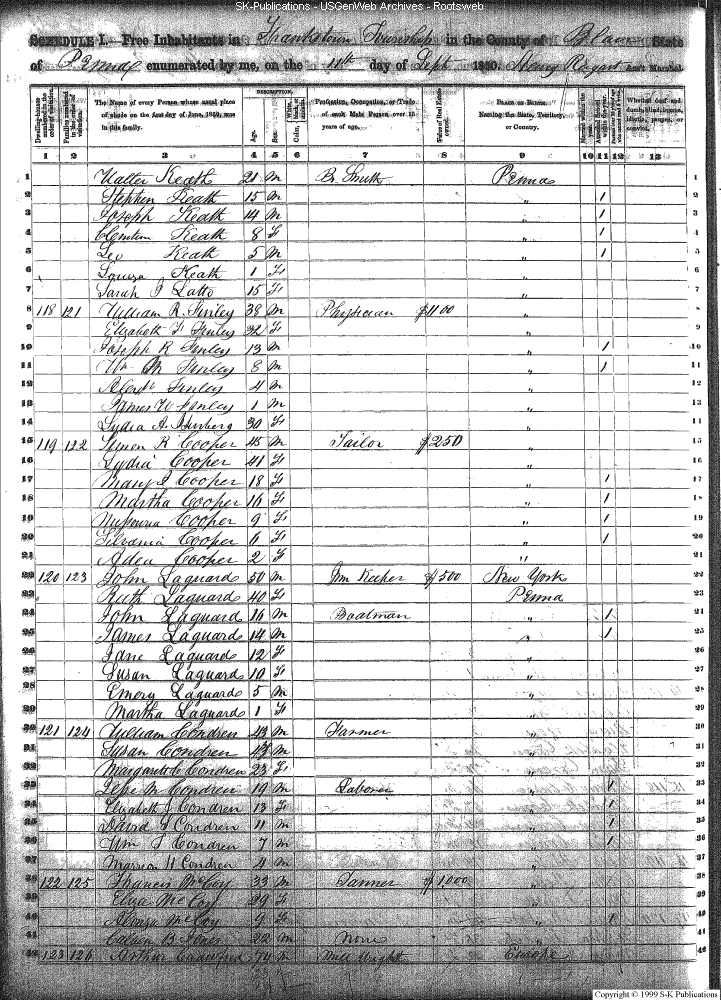 SK-Publications - USGenWeb Archives - Rootsweb
SCHEDULE I.—Free Inhabitants in Frankstown Township in the County of Blair State
of Penna enumerated by me, on the 11th day of Sept 1850. Henry Ass't Marshal.
DESCRIPTION.
Dwelling-houses numbered in the order of visitation.
Families numbered in the order of visitation.
The Name of every Person whose usual place of abode on the first day of June, 1850, was in this family.
Age.
Sex.
Profession, Occupation, or Trade of each Male Person over 15 years of age.
Value of Real Estate owned.
PLACE OF BIRTH. Naming the State, Territory, or Country.
Married within the year.
Attended School within the year.
Whether deaf and dumb, blind, insane, idiotic, pauper, or convict.
1 2 3 4 5 6 7 8 9 10 11 12 13
1 Walter Keath 21 M B. Smith Penna 1
2 Stephen Keath 15 M " 1 2
3 Joseph Keath 14 M " 1 3
4 Keath 8 F " 1 4
5 Leo Keath 5 M " 1 5
6 Louisa Keath 1 F " 6
7 Sarah J Latto 15 F " 7
8 118 121 William R. Finley 38 M Physician $1100 " 8
9 Elizabeth Finley 32 F " 9
10 Joseph R Finley 13 M " 1 10
11 Wm M Finley 8 M " 1 11
12 Alexr Finley 4 M " 12
13 James W Finley 1 M " 13
14 Lydia A. 30 F " 14
15 119 122 Simon K Cooper 45 M Tailor $250 " 15
16 Lydia Cooper 41 F " 16
17 Mary J Cooper 18 F " 1 17
18 Martha Cooper 16 F " 1 18
19 Cooper 9 F " 1 19
20 Silvania Cooper 6 F " 1 20
21 Cooper 2 F " 21
22 120 123 John Laguard 50 M Inn Keeper $500 New York 22
23 Ruth Laguard 40 F Penna 23
24 John Laguard 16 M Boatman " 1 24
25 James Laguard 14 M " 1 25
26 Jane Laguard 12 F " 26
27 Susan Laguard 10 F " 27
28 Emery Laguard 5 M " 28
29 Martha Laguard 1 F " 29
30 121 124 William Condren 43 M Farmer " 30
31 Susan Condren M " 31
32 Margarett C Condren 23 F " 32
33 M Condren 19 M Laborer " 1 33
34 Elizabeth J Condren 13 F " 1 34
35 David Condren 11 M " 1 35
36 Wm Condren 7 M " 1 36
37 Marion H Condren 4 M " 37
38 122 125 Francis McCoy 33 M Tanner $1,000 " 38
39 Eliza McCoy 29 F " 39
40 Alonzo McCoy 9 " 1 40
41 Calvin B. Jones 22 M None " 41
42 123 126 Arthur Crawford 74 M Mill Wright Europe 42
Copyright © 1999 S-K Publications